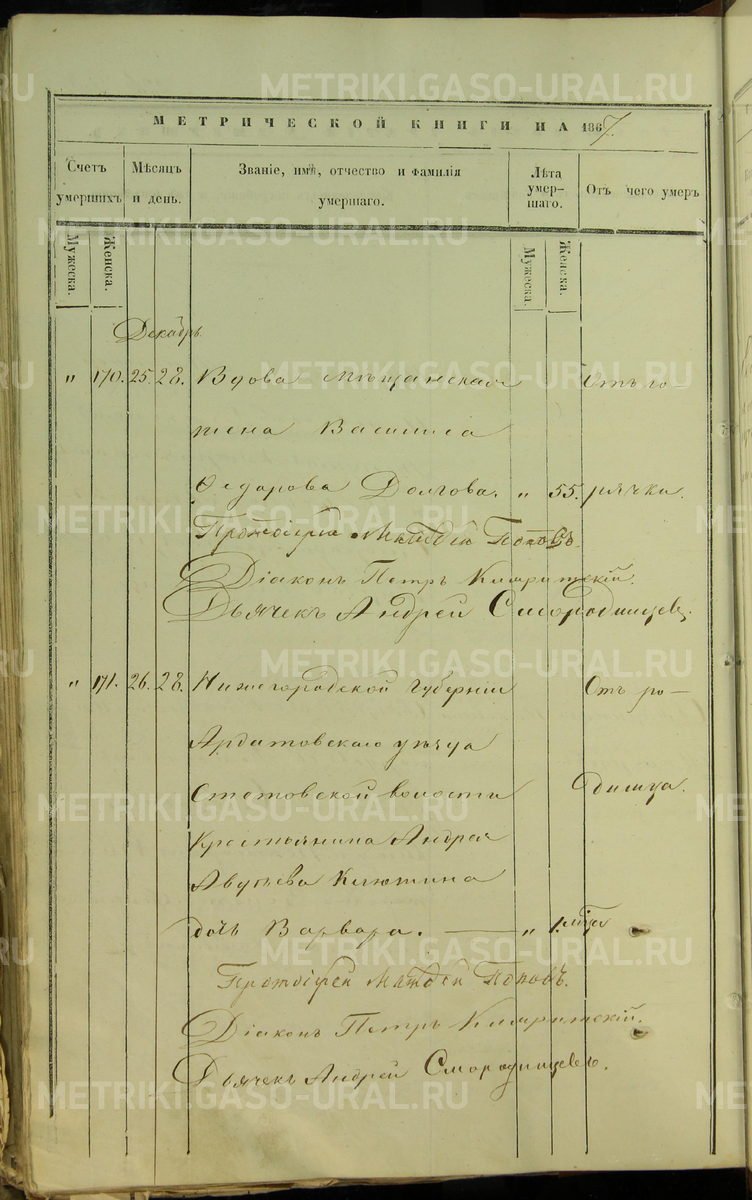 МЕТРИЧЕСКОЙ КНИГИ НА 1867
Счетъ умершихъ
Мѣсяцъ и день.
Званіе, имя, отчество и фамилія умершаго.
Лѣта умершаго.
Отъ чего умеръ
Мужеска.
Женска.
Мужеска.
Женска.
Декабрь
" 170. 25. 28. Вдова мѣщанская Отъ го-
жена Васишса
Ѳедорова Долгова. " 55. рячки.
Протоіерей Матѳей Поповъ.
Діаконъ Петръ
Дьячекъ Андрей Смородинцевъ.
" 171. 26. 28. Нижегородской губерніи Отъ ро-
Ардатовскаго уѣзда
волости димца.
Крестьянина Андрея
дочь Варвара. " 1. мѣся
Протоіерей Матѳей Поповъ.
Діаконъ Петръ
Дьячекъ Андрей Смородинцевъ.
METRIKI.GASO-URAL.RU